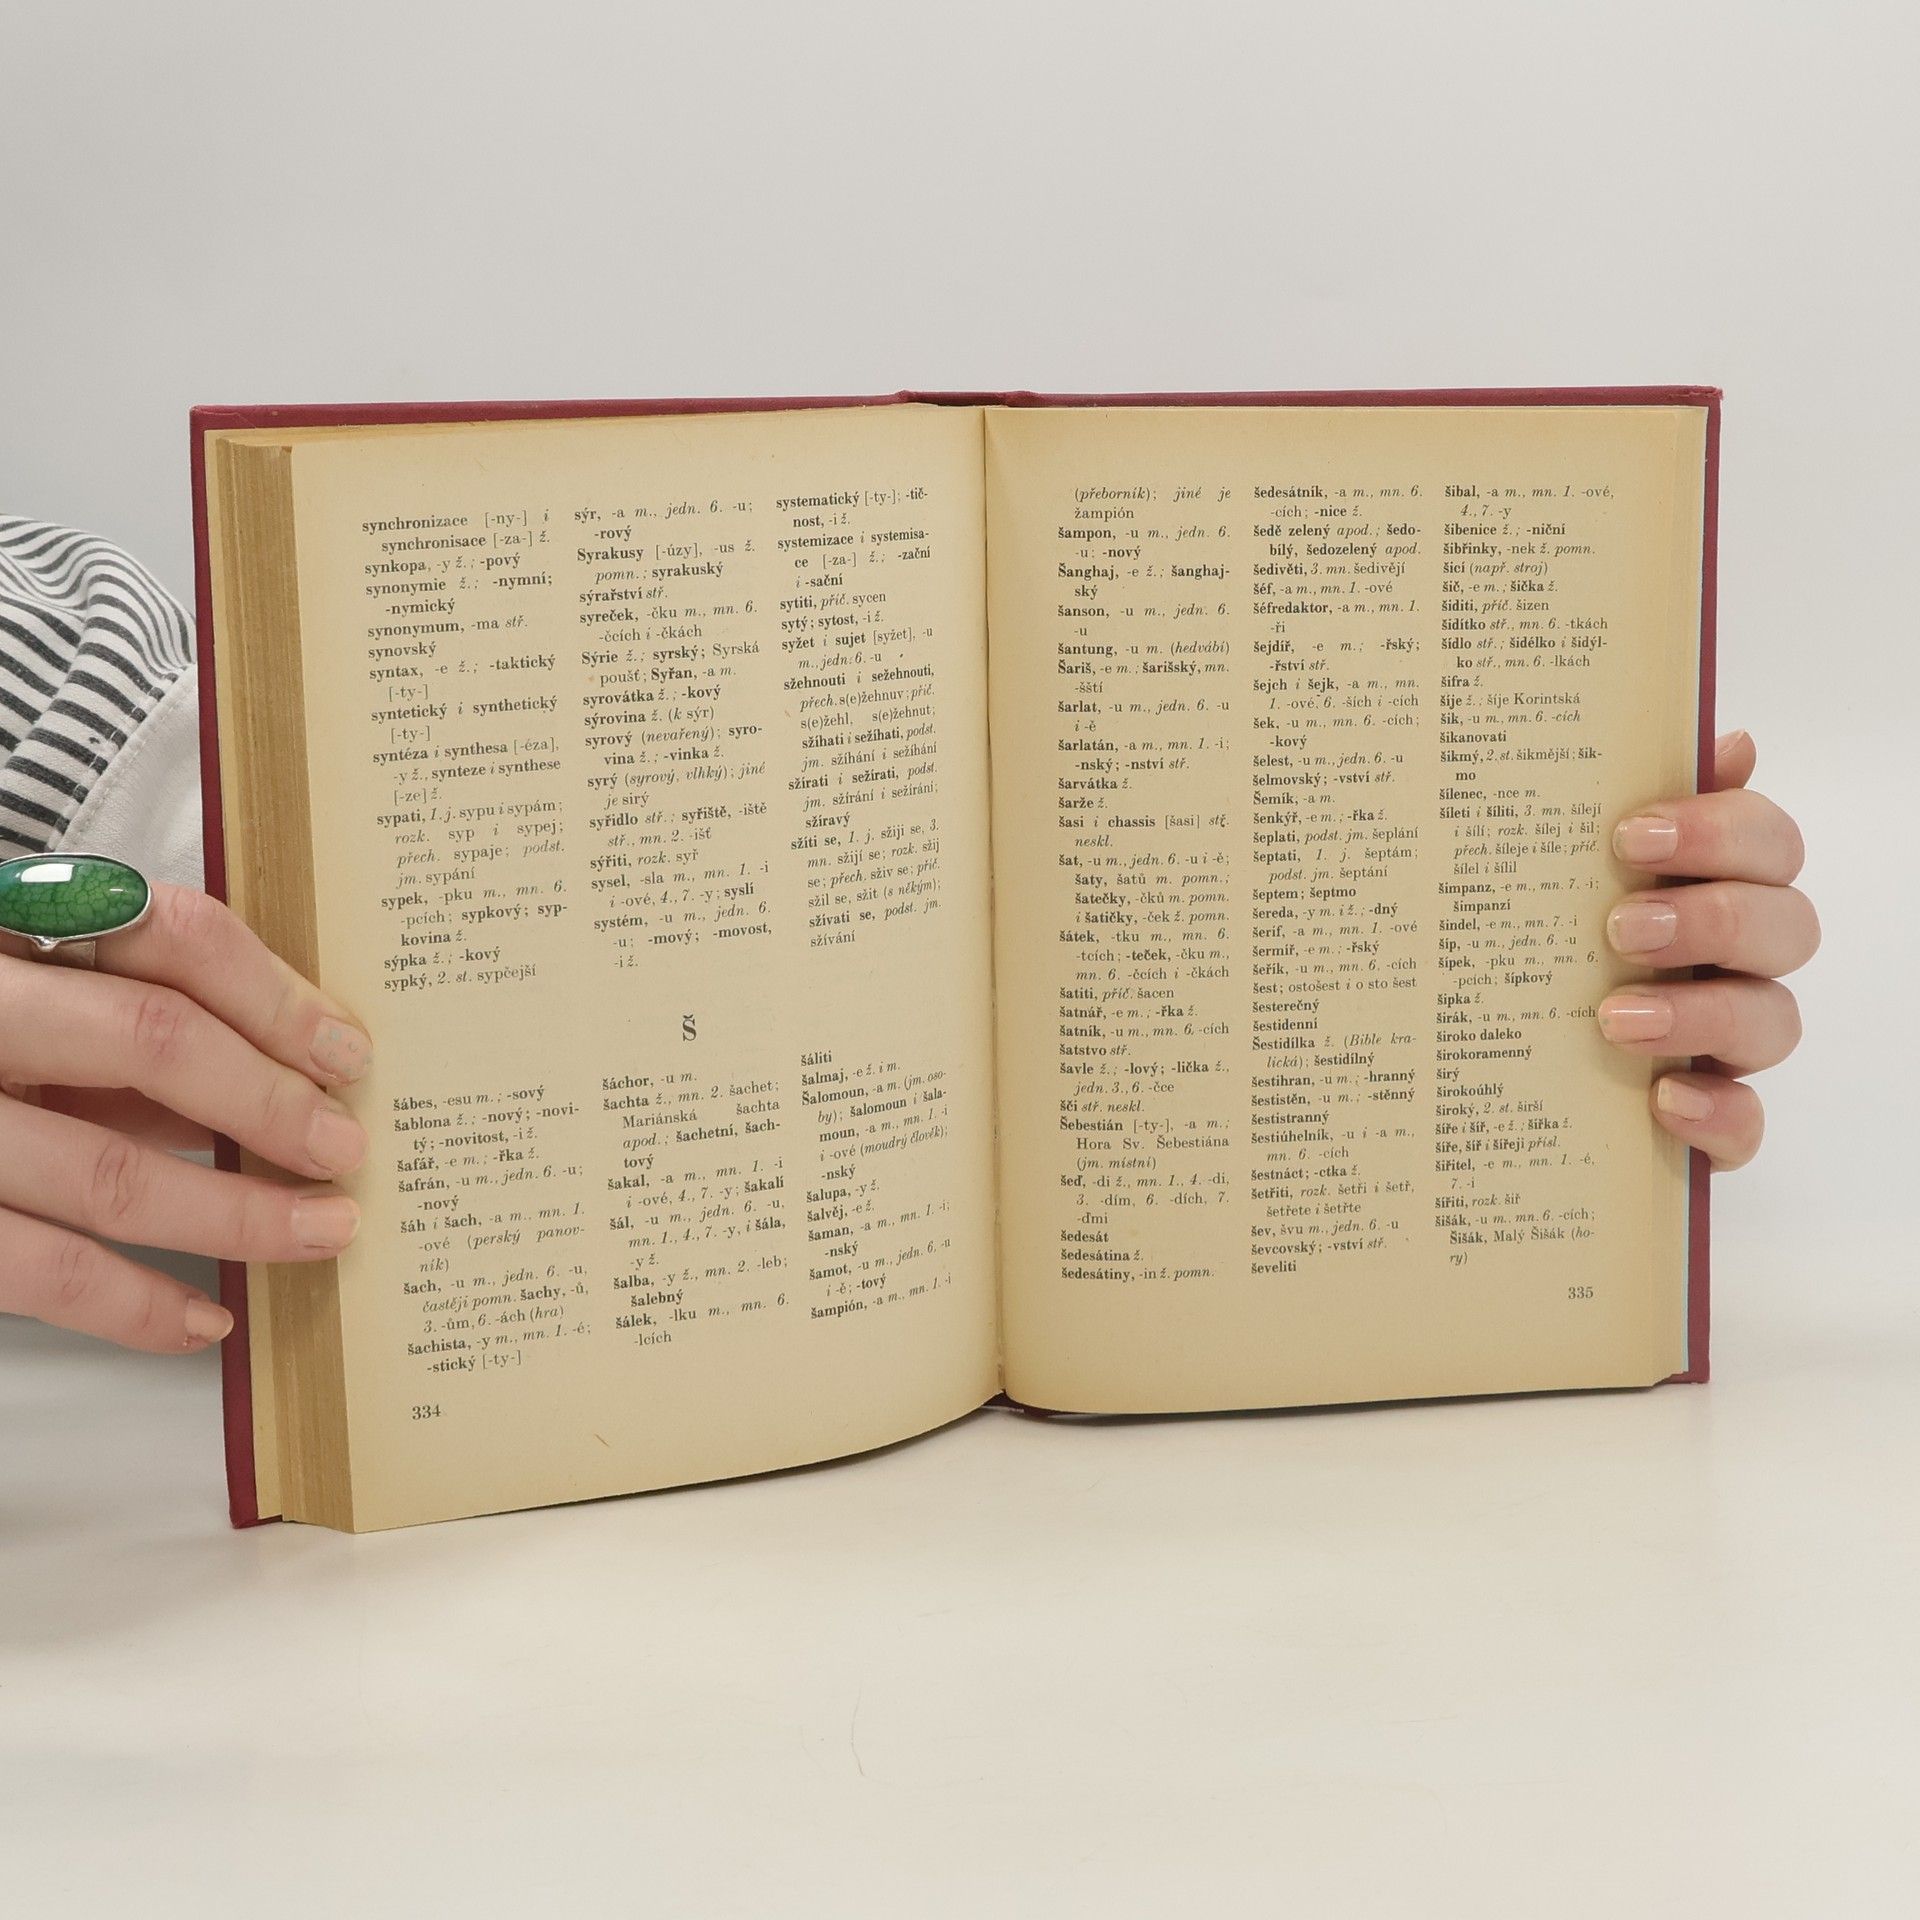 synchronizace [-ny-] i
synchronisace [-za-] ž.
synkopa, -y ž.; -pový
synonymie ž.; -nymní;
-nymický
synonymum, -ma stř.
synovský
syntax, -e ž.; -taktický
[-ty-]
syntetický i synthetický
[-ty-]
syntéza i synthesa [-éza],
-y ž., synteze i synthese
[-ze] ž.
sypati, 1. j. sypu i sypám;
rozk. syp i sypej;
přech. sypaje; podst.
jm. sypání
sypek, -pku m., mn. 6.
-pcích; sypkový; syp-
kovina ž.
sýpka ž.; -kový
sypký, 2. st. sypčejší
sýr, -a m., jedn. 6. -u;
-rový
Syrakusy [-úzy], -us ž.
pomn.; syrakuský
sýrařství stř.
syreček, -čku m., mn. 6.
-čcích i -čkách
Sýrie ž.; syrský; Syrská
poušť; Syřan, -a m.
syrovátka ž.; -kový
sýrovina ž. (k sýr)
syrový (nevařený); syro-
vina ž.; -vinka ž.
syrý (syrový, vlhký); jiné
je sirý
syřidlo stř.; syřiště, -iště
stř., mn. 2. -išť
sýřiti, rozk. syř
sysel, -sla m., mn. 1. -i
i -ové, 4., 7. -y; syslí
systém, -u m., jedn. 6.
-u; -mový; -movost,
-i ž.
systematický [-ty-]; -tič-
nost, -i ž.
systemizace i systemisa-
ce [-za-] ž.; -zační
i -sační
sytiti, příč. sycen
sytý; sytost, -i ž.
syžet i sujet [syžet], -u
m., jedn. 6. -u
sžehnouti i sežehnouti,
přech. s(e)žehnuv; příč.
s(e)žehl, s(e)žehnut;
sžíhati i sežíhati, podst.
jm. sžíhání i sežíhání
sžírati i sežírati, podst.
jm. sžírání i sežírání;
sžíravý
sžíti se, 1. j. sžiji se, 3.
mn. sžijí se; rozk. sžij
se; přech. sživ se; příč.
sžil se, sžit (s někým);
sžívati se, podst. jm.
sžívání
Š
šábes, -esu m.; -sový
šablona ž.; -nový; -novi-
tý; -novitost, -i ž.
šafář, -e m.; -řka ž.
šafrán, -u m., jedn. 6. -u;
-nový
šáh i šach, -a m., mn. 1.
-ové (perský panov-
ník)
šach, -u m., jedn. 6. -u,
častěji pomn. šachy, -ů,
3. -ům, 6. -ách (hra)
šachista, -y m., mn. 1. -é;
-stický [-ty-]
šáchor, -u m.
šachta ž., mn. 2. šachet;
Mariánská šachta
apod.; šachetní, šach-
tový
šakal, -a m., mn. 1. -i
i -ové, 4., 7. -y; šakalí
šál, -u m., jedn. 6. -u,
mn. 1., 4., 7. -y, i šála,
-y ž.
šalba, -y ž., mn. 2. -leb;
šalebný
šálek, -lku m., mn. 6.
-lcích
šáliti
šalmaj, -e ž. i m.
Šalomoun, -a m. (jm. oso-
by); šalomoun i šala-
moun, -a m., mn. 1. -i
i -ové (moudrý člověk);
-nský
šalupa, -y ž.
šalvěj, -e ž.
šaman, -a m., mn. 1. -i;
-nský
šamot, -u m., jedn. 6. -u
i -ě; -tový
šampión, -a m., mn. 1. -i
334
(přeborník); jiné je
žampión
šampon, -u m., jedn. 6.
-u; -nový
Šanghaj, -e ž.; šanghaj-
ský
šanson, -u m., jedn. 6.
-u
šantung, -u m. (hedvábí)
Šariš, -e m.; šarišský, mn.
-šští
šarlat, -u m., jedn. 6. -u
i -ě
šarlatán, -a m., mn. 1. -i;
-nský; -nství stř.
šarvátka ž.
šarže ž.
šasi i chassis [šasi] stř.
neskl.
šat, -u m., jedn. 6. -u i -ě;
šaty, šatů m. pomn.;
šatečky, -čků m. pomn.
i šatičky, -ček ž. pomn.
šátek, -tku m., mn. 6.
-tcích; -teček, -čku m.,
mn. 6. -čcích i -čkách
šatiti, příč. šacen
šatnář, -e m.; -řka ž.
šatník, -u m., mn. 6. -cích
šatstvo stř.
šavle ž.; -lový; -lička ž.,
jedn. 3., 6. -čce
šči stř. neskl.
Šebestián [-ty-], -a m.;
Hora Sv. Šebestiána
(jm. místní)
šeď, -di ž., mn. 1., 4. -di,
3. -dím, 6. -dích, 7.
-ďmi
šedesát
šedesátina ž.
šedesátiny, -in ž. pomn.
šedesátník, -a m., mn. 6.
-cích; -nice ž.
šedě zelený apod.; šedo-
bílý, šedozelený apod.
šedivěti, 3. mn. šedivějí
šéf, -a m., mn. 1. -ové
šéfredaktor, -a m., mn. 1.
-ři
šejdíř, -e m.; -řský;
-řství stř.
šejch i šejk, -a m., mn.
1. -ové, 6. -ších i -cích
šek, -u m., mn. 6. -cích;
-kový
šelest, -u m., jedn. 6. -u
šelmovský; -vství stř.
Šemík, -a m.
šenkýř, -e m.; -řka ž.
šeplati, podst. jm. šeplání
šeptati, 1. j. šeptám;
podst. jm. šeptání
šeptem; šeptmo
šereda, -y m. i ž.; -dný
šerif, -a m., mn. 1. -ové
šermíř, -e m.; -řský
šeřík, -u m., mn. 6. -cích
šest; ostošest i o sto šest
šesterečný
šestidenní
Šestidílka ž. (Bible kra-
lická); šestidílný
šestihran, -u m.; -hranný
šestistěn, -u m.; -stěnný
šestistranný
šestiúhelník, -u i -a m.,
mn. 6. -cích
šestnáct; -ctka ž.
šetřiti, rozk. šetři i šetř,
šetřete i šetřte
šev, švu m., jedn. 6. -u
ševcovský; -vství stř.
ševeliti
šibal, -a m., mn. 1. -ové,
4., 7. -y
šibenice ž.; -niční
šibřinky, -nek ž. pomn.
šicí (např. stroj)
šič, -e m.; šička ž.
šiditi, příč. šizen
šidítko stř., mn. 6. -tkách
šídlo stř.; šidélko i šidýl-
ko stř., mn. 6. -lkách
šifra ž.
šíje ž.; šíje Korintská
šik, -u m., mn. 6. -cích
šikanovati
šikmý, 2. st. šikmější; šik-
mo
šílenec, -nce m.
šíleti i šíliti, 3. mn. šílejí
i šílí; rozk. šílej i šil;
přech. šíleje i šíle; příč.
šílel i šílil
šimpanz, -e m., mn. 7. -i;
šimpanzí
šindel, -e m., mn. 7. -i
šíp, -u m., jedn. 6. -u
šípek, -pku m., mn. 6.
-pcích; šípkový
šipka ž.
širák, -u m., mn. 6. -cích
široko daleko
širokoramenný
širý
širokoúhlý
široký, 2. st. širší
šíře i šíř, -e ž.; šířka ž.
šíře, šíř i šířeji přísl.
šiřitel, -e m., mn. 1. -é,
7. -i
šířiti, rozk. šiř
šišák, -u m. mn. 6. -cích;
Šišák, Malý Šišák (ho-
ry)
335